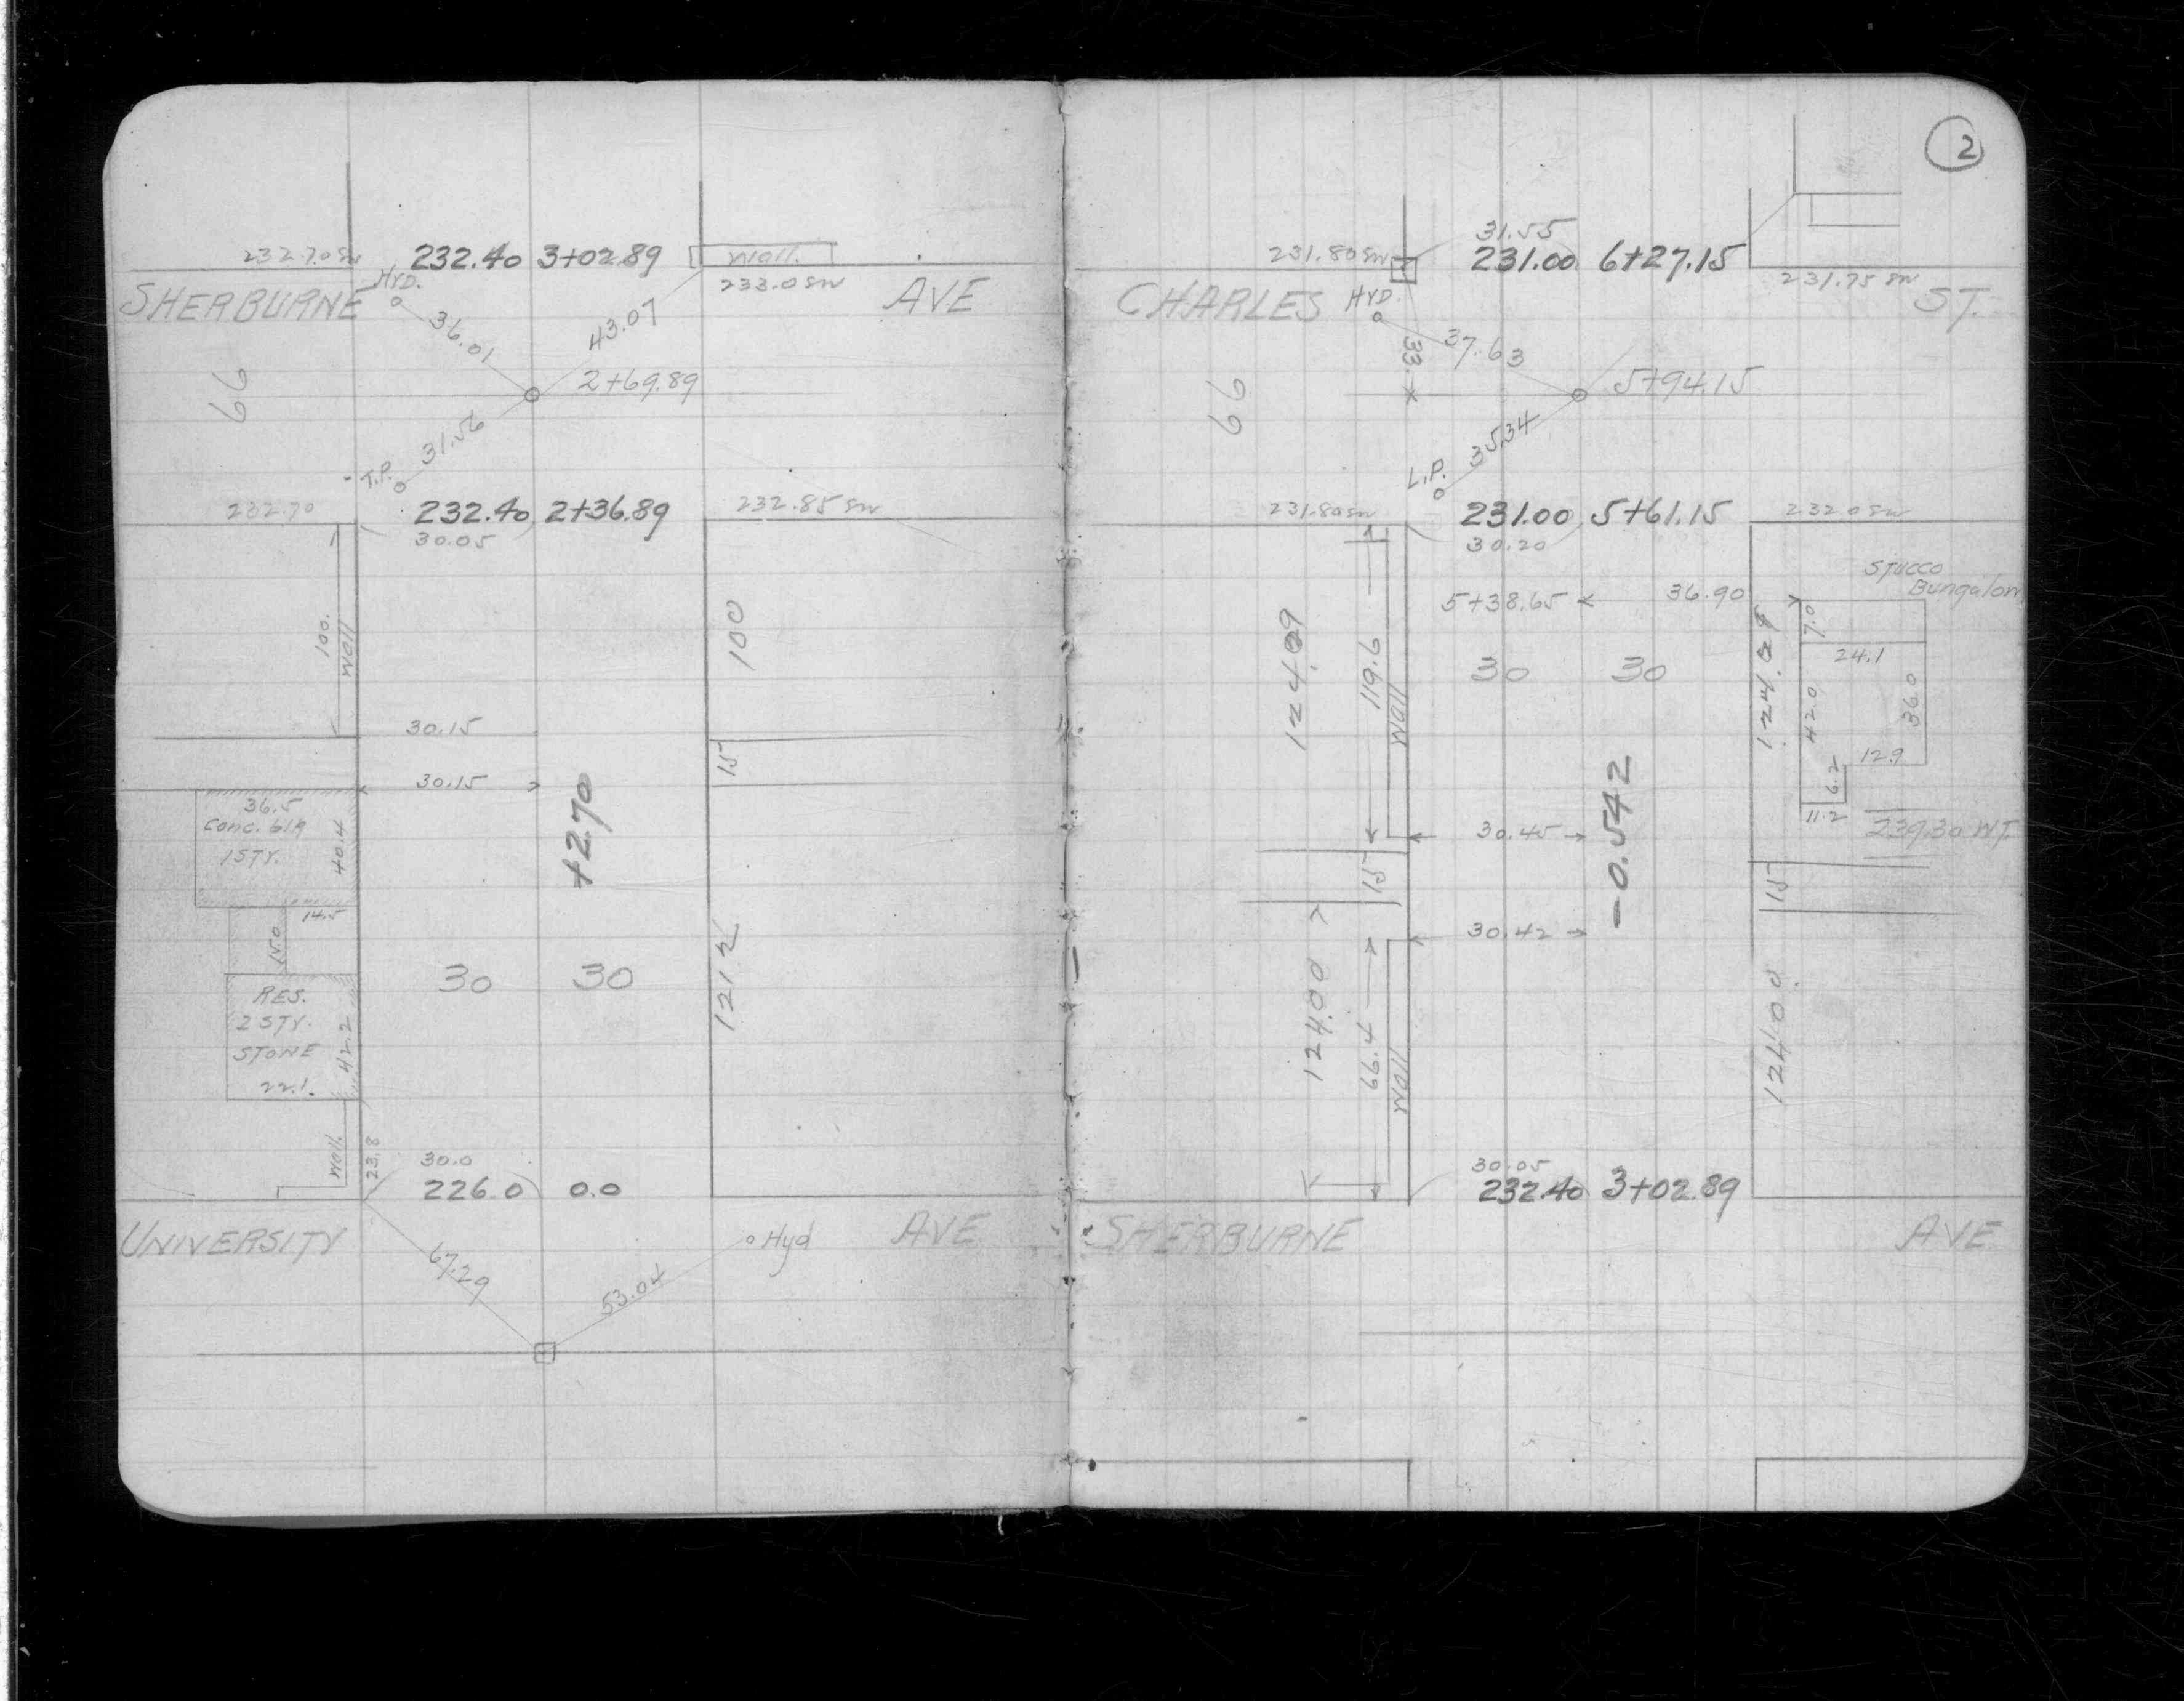 232.70 SW
232.40 3+02.89
Wall.
233.0 SW
SHERBURNE
HYD.
AVE
36.01
43.07
66
2+69.89
31.56
T.P.
232.70
232.40 2+36.89
232.85 SW
30.05
100.
Wall
100
30.15
15
30.15
36.5
Conc. blk
1 STY.
40.4
+2.70
14.5
15.0
30 30
RES.
2 STY.
STONE
22.1.
42.2
Wall.
23.8
30.0
226.0 0.0
UNIVERSITY
AVE
Hyd
67.29
53.04
2
31.55
231.80 SW
231.00 6+27.15
231.75 SW
CHARLES
HYD.
ST.
33.
37.63
66
5+94.15
35.34
L.P.
231.80 SW
231.00 5+61.15
232.0 SW
30.20
STUCCO
Bungalow
5+38.65
36.90
7.0
119.6
Wall
30 30
24.1
42.0
36.0
12.9
6.2
11.2
30.45
-0.542
239.30 W.T.
15
15
30.42
124.00
66.4
Wall
124.00
30.05
232.40 3+02.89
SHERBURNE
AVE